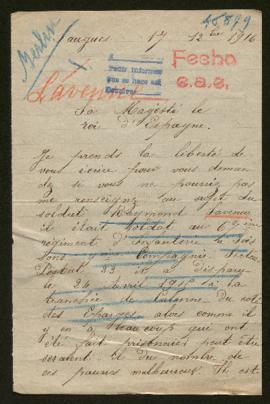 45.879
Berlin
Saugues 17 12bre 1916
Pedir informes
que se hace así
Fecho
e.a.e.
Lavenu
Sa Majesté le
roi d'Espagne.
Je prends la liberté de
vous écrire pour vous deman
der si vous ne pourriez pas
me renseigner au sujet du
soldat Raymond Lavenu
il était soldat au
régiment d'infanterie
Compagnie, Secteur
Postal 22 il a dispa
le 24 Avril 1915 à la
tranchée de Calonne du coté
des Eparges alors comme il
y en a beaucoup que ont
été fait prisonnier peut être
serait il du nombre de
ces pauvres malheureux. Il est